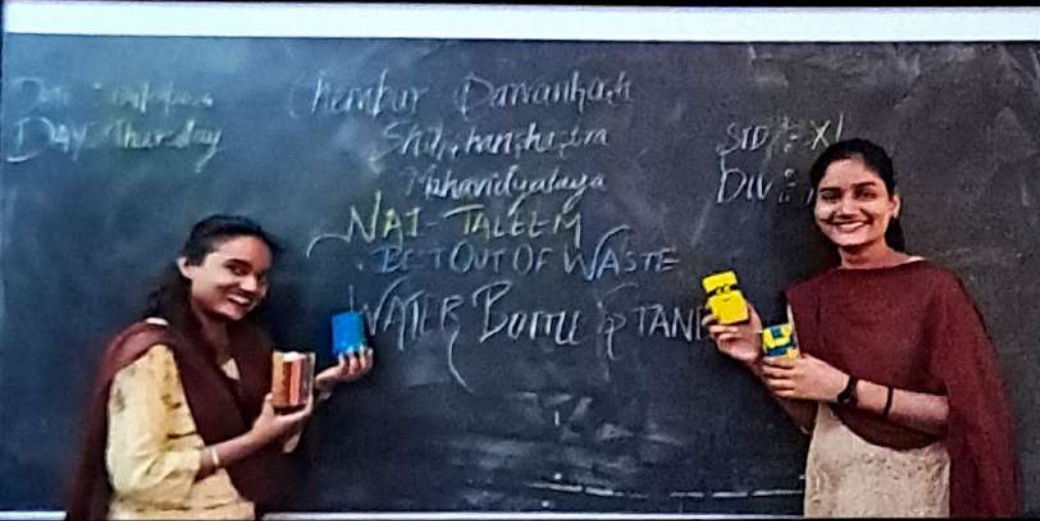 DAY: Thursday
Chembur Sarvankash
Shikshanshastra
Mahavidyalaya
STD : XI
DIV :
NAI-TALEEM
BEST OUT OF WASTE
WATER BOTTLE STAND